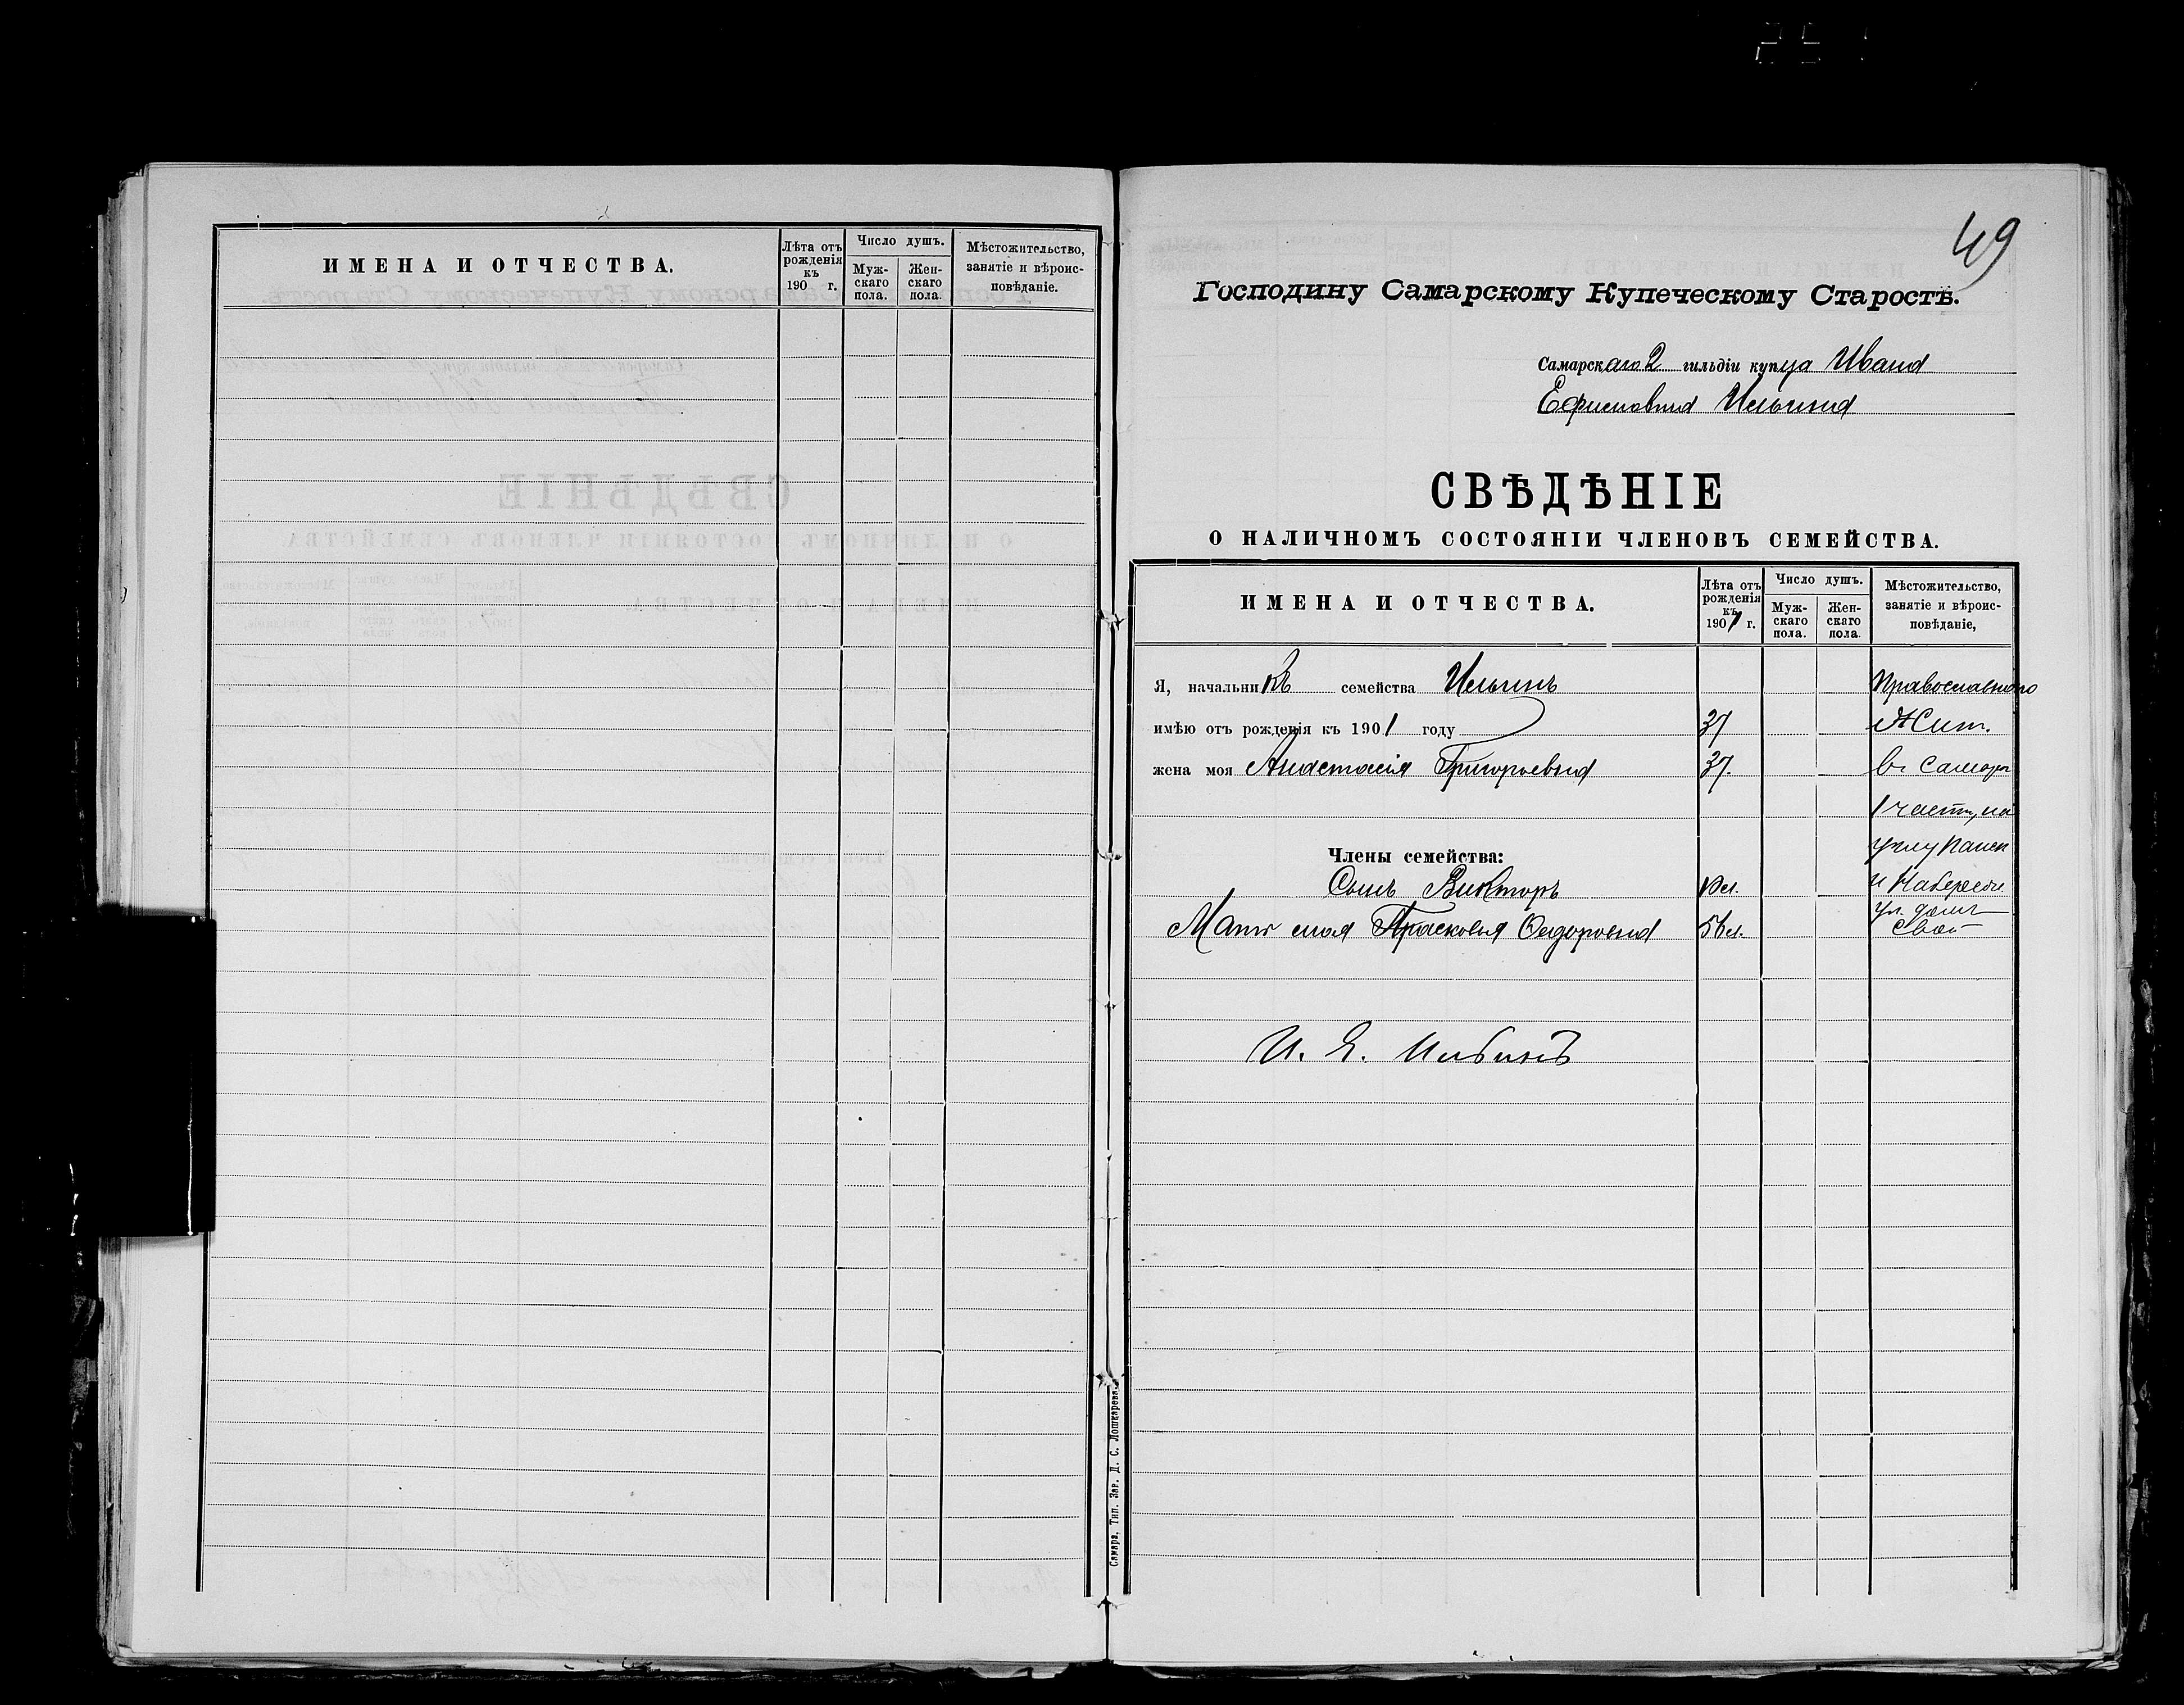 ИМЕНА И ОТЧЕСТВА.
Лѣта отъ рожденія къ 190 г.
Число душъ.
Мужскаго пола.
Женскаго пола.
Мѣстожительство, занятіе и вѣроисповѣданіе.
49
Господину Самарскому Купеческому Старостѣ.
Самарскаго 2 гильдіи купца Ивана
Ефимовича Ильина
СВѢДѢНІЕ
О НАЛИЧНОМЪ СОСТОЯНІИ ЧЛЕНОВЪ СЕМЕЙСТВА.
ИМЕНА И ОТЧЕСТВА.
Лѣта отъ рожденія къ 1901 г.
Число душъ.
Мужскаго пола.
Женскаго пола.
Мѣстожительство, занятіе и вѣроисповѣданіе,
Я, начальникъ семейства Ильинъ Православнаго
имѣю отъ рожденія къ 1901 году 37 Жит.
жена моя Анастасія Григорьевна 37. въ Самарѣ
1 части, на
Члены семейства: углу Панск
Сынъ Викторъ и Набережн.
Мать моя Прасковья Ѳедоровна ул. домъ
свой
И. Е. Ильинъ
Самара. Тип. Зав. Д. С. Лошкарева.